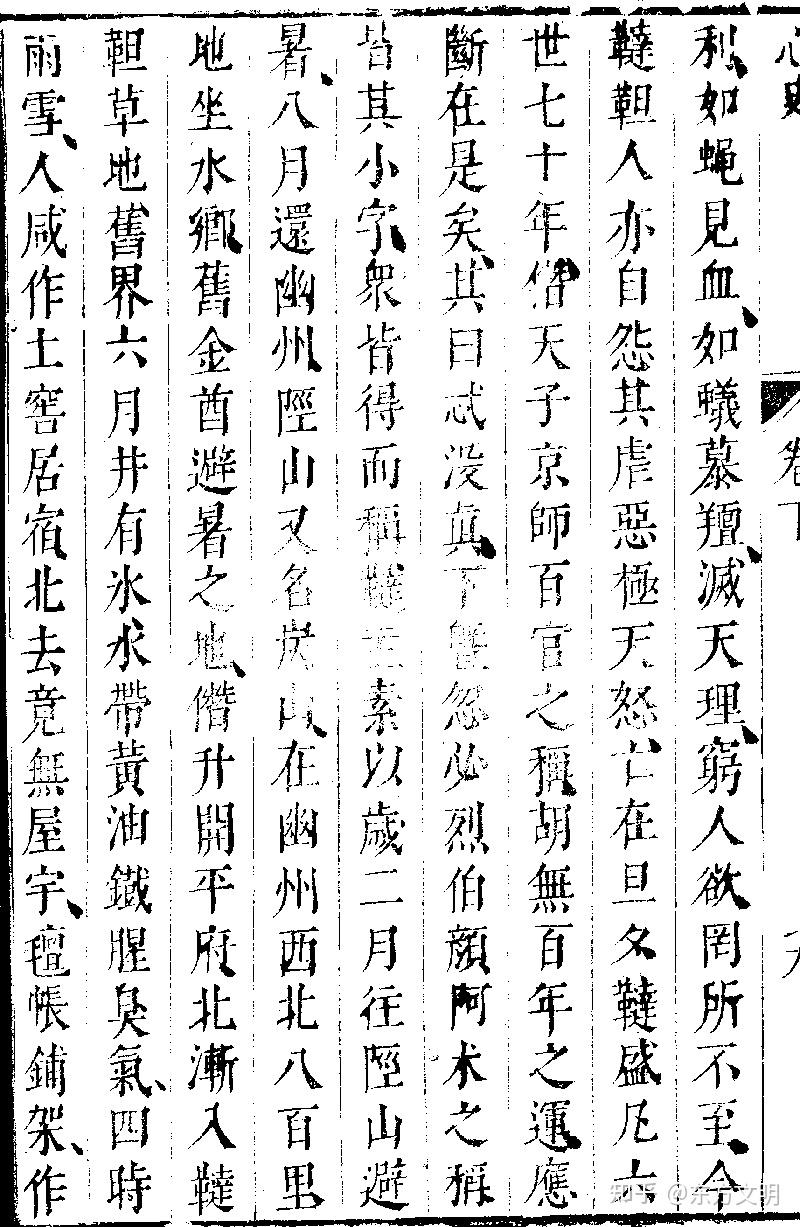 心史 卷下
利、如蝇見血、如蟻慕羶、滅天理、窮人欲罔所不至、今
韃靼人亦自怨其虐惡極天怒亡在旦夕韃盛凡六
世七十年僭天子京師百官之稱、胡無百年之運、應
斷在是矣、其曰忒没真、下暨忽必烈伯顏阿朮之稱
皆其小字、衆皆得而稱韃主素以歲二月往陘山避
暑、八月還幽州、陘山又名炭山、在幽州西北八百里
地坐水鄉、舊金酋避暑之地、僭升開平府北漸入韃
靼草地舊界六月井有氷水帶黄油鐵腥臭氣、四時
雨雪、人咸作土窖居宿、北去竟無屋宇、氊帳鋪架、作
知乎 @东方文明